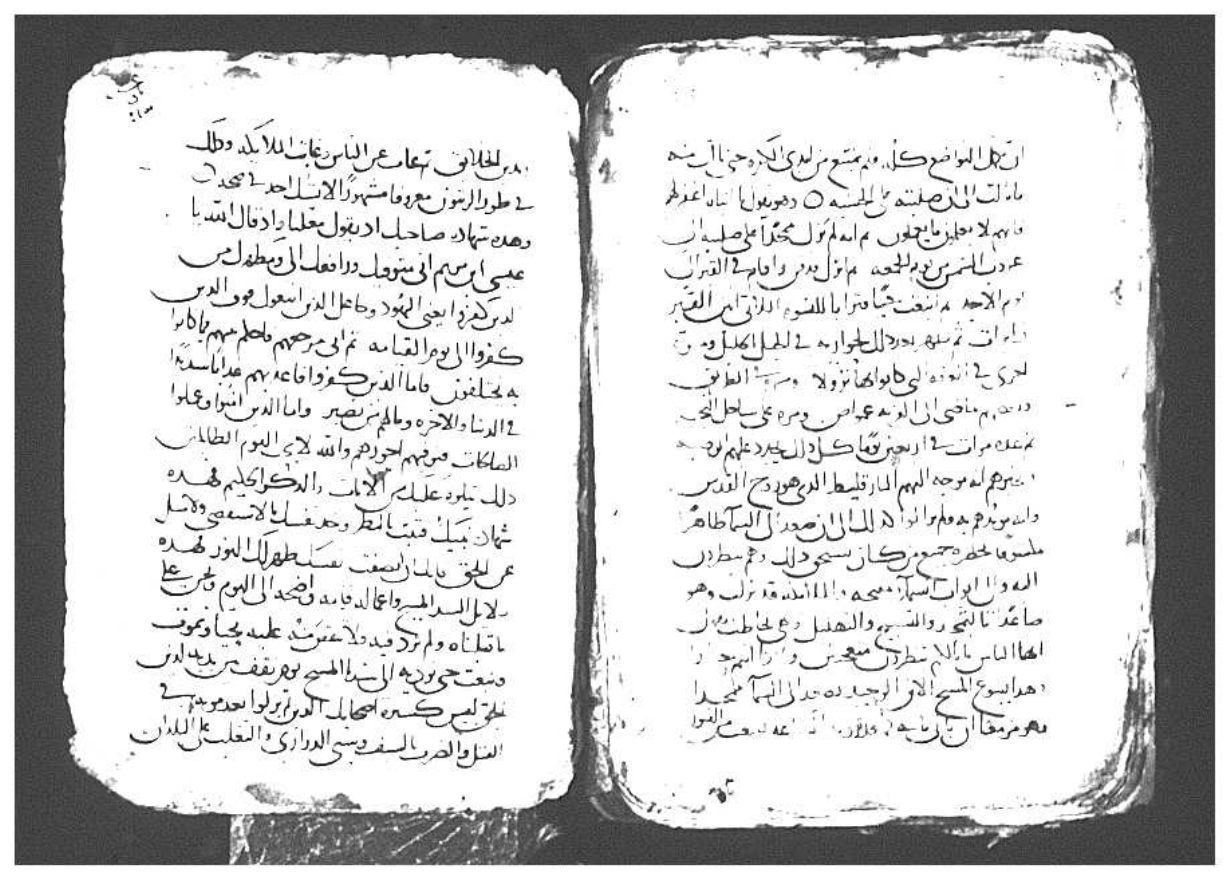 ان تحمل التواضع كله ولم يمتنع من لدي الكفره حتى نالت منه
ما نالت الى ان صلبته على الخشبه وهو يقول يا ابتاه اغفر لهم
فانهم لا يعلمون ما يفعلون ثم انه لم يزل ممجدا على صليبه الى
غروب الشمس من يوم الجمعه ثم انزل ودفن واقام في القبر الى
يوم الاحد ثم انبعث حيا فترايا للنسوه اللاتي اتين القبر
زايرات ثم ظهر بعد ذلك لحواريه في الجبل الجليل ومره
اخرى في الغرفه التي كانوا بها نزولا ومره في الطريق
ماضي الى القريه عمواص ومره على ساحل البحر
ثم عده مرات في اربعين يوما كل ذلك يجدد عليهم الوصيه
ويخبرهم انه يوجه اليهم البارقليط الذي هو روح القدس
وانه مويدهم به ولم يزالوا كذلك الى ان صعد الى السما طاهرا
جميع من كان يستحق ذلك وهم ينظرون
اليه والى ابواب السما مفتحه والملايكه قد نزلت وهو
صاعد بالتمجيد والتسبيح والتهليل وهي تخاطب
ايها الناس ما بالكم تنظرون متعجبين
هذا يسوع المسيح الابن الوحيد قد صعد الى السما ممجدا
وهو مزمعا ان ياتي
يدين الخلايق ثم غاب عن الناس وغابت الملايكه وذلك
في طور الزيتون معروفا مشهورا لا يشك احد في مجده
وهذه شهاده صاحبك اذ يقول معلنا واذ قال الله يا
عيسى ابن مريم اني متوفيك ورافعك الي ومطهرك من
الذين كفروا يعني اليهود وجاعل الذين اتبعوك فوق الذين
كفروا الى يوم القيامه ثم الي مرجعهم فاحكم بينهم فيما كانوا
به يختلفون فاما الذين كفروا فاعذبهم عذابا شديدا
في الدنيا والاخره وما لهم من نصير واما الذين امنوا وعملوا
الصالحات فنوفيهم اجورهم والله لا يحب القوم الظالمين
ذلك نتلوه عليك من الايات والذكر الحكيم فهذه
شهادة نبيك فتثبت بالنظر وخذ نفسك بالاستقصى ولا تمل
عن الحق فانك ان انصفت نفسك ظهر لك النور فهذه
دلايل السيد المسيح واعماله قايمه واضحه الى اليوم ونحن على
ما قبلناه ولم نزد فيه ولا نقص منه عليه نحيا ونموت
ونبعث حتى نوديه الى سيدنا المسيح يوم نقف بين يديه لدين
الحق ليس كسيره اصحابك الذين لم يزلوا بعد موته في
القتل والضرب بالسيف وسبي الذراري والتغلب على البلدان